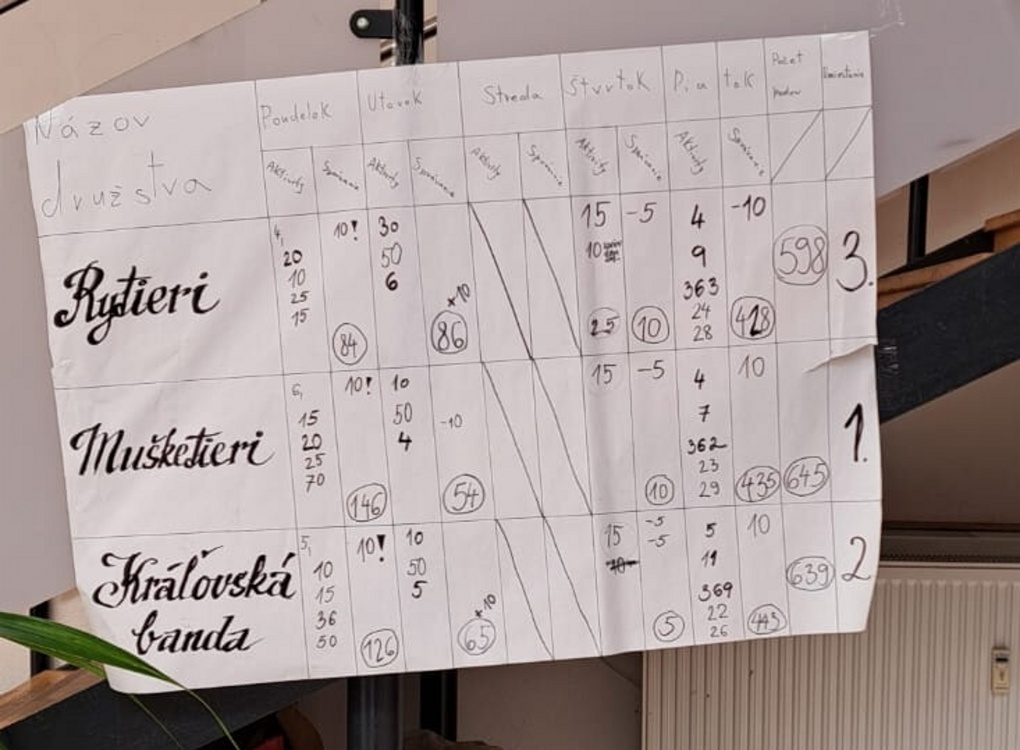 Názov
družstva
Pondelok Utorok Streda Štvrtok Pia tok Počet bodov Umiestnenie
Aktivity Správanie Aktivity Správanie Aktivity Správanie Aktivity Správanie Aktivity Správanie
Rytieri
4, 10! 30 15 -5 4 -10
20 50 10 9 598 3.
10 6 363
25 x10 24
15 84 86 25 10 28 428
Mušketieri
6, 10! 10 15 -5 4 10
15 50 -10 7
20 4 362 1.
25 23
70 146 54 10 29 435 645
Kráľovská
banda
5, 10! 10 15 -5 5 10
10 50 -5 19
15 5 369 639 2
36 x10 22
50 126 65 5 26 443